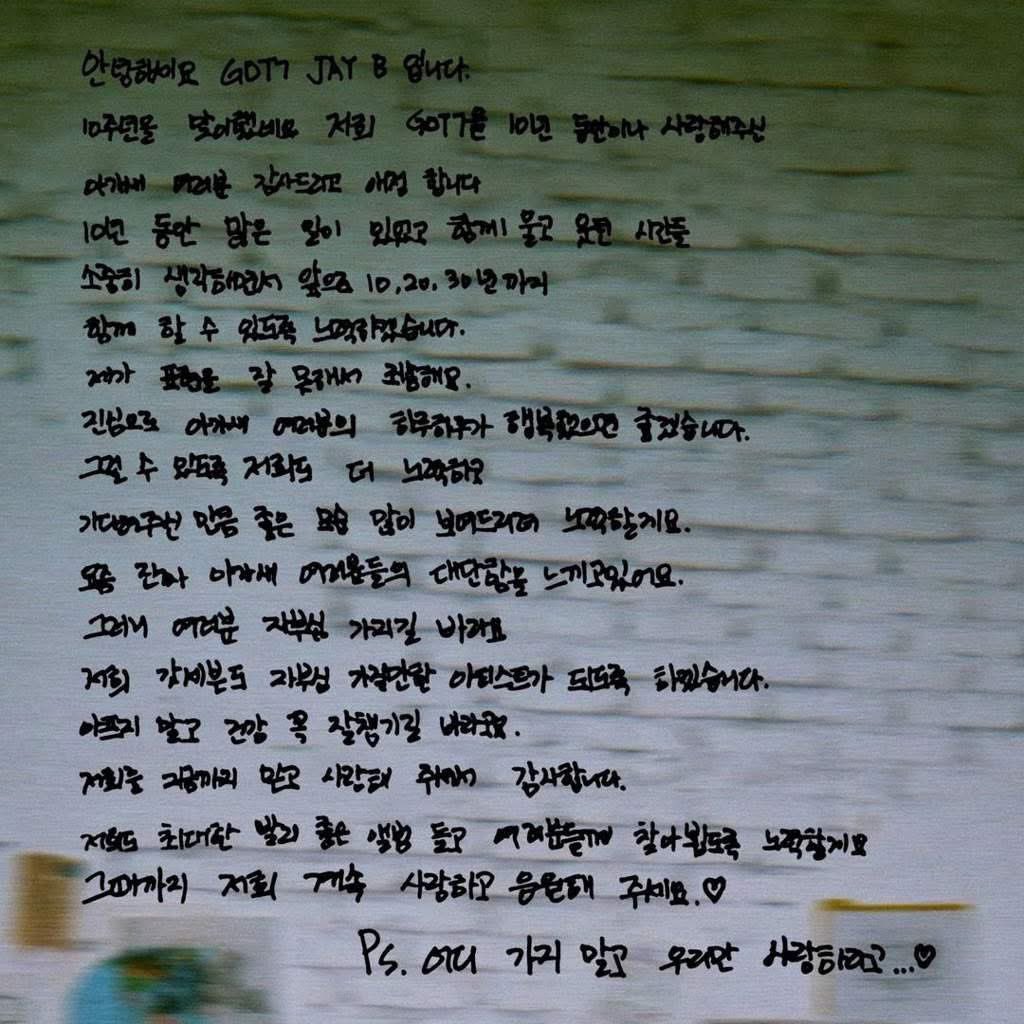 안녕하세요 GOT7 JAY B 입니다.
10주년을 맞이했네요 저희 GOT7을 10년 동안이나 사랑해주신
아가새 여러분 감사드리고 애정 합니다
10년 동안 많은 일이 있었고 함께 울고 웃던 시간들
소중히 생각하면서 앞으로 10, 20, 30년까지
함께 할 수 있도록 노력하겠습니다.
제가 표현을 잘 못해서 죄송해요.
진심으로 아가새 여러분의 하루하루가 행복했으면 좋겠습니다.
그럴 수 있도록 저희도 더 노력하고
기다려주신 만큼 좋은 모습 많이 보여드리려 노력할게요.
요즘 아가새 여러분들의 대단함을 느끼고있어요.
그러니 여러분 자부심 가지길 바라요
저희 갓세븐도 자부심 가질만한 아티스트가 되도록 하겠습니다.
아프지 말고 건강 꼭 잘챙기길 바라요.
저희를 지금까지 믿고 사랑해 주셔서 감사합니다.
저희도 최대한 빨리 좋은 앨범 들고 여러분들께 찾아뵙도록 노력할게요
그때까지 저희 계속 사랑하고 응원해 주세요.♡
Ps. 어디 가지 말고 우리만 사랑하라고...♡